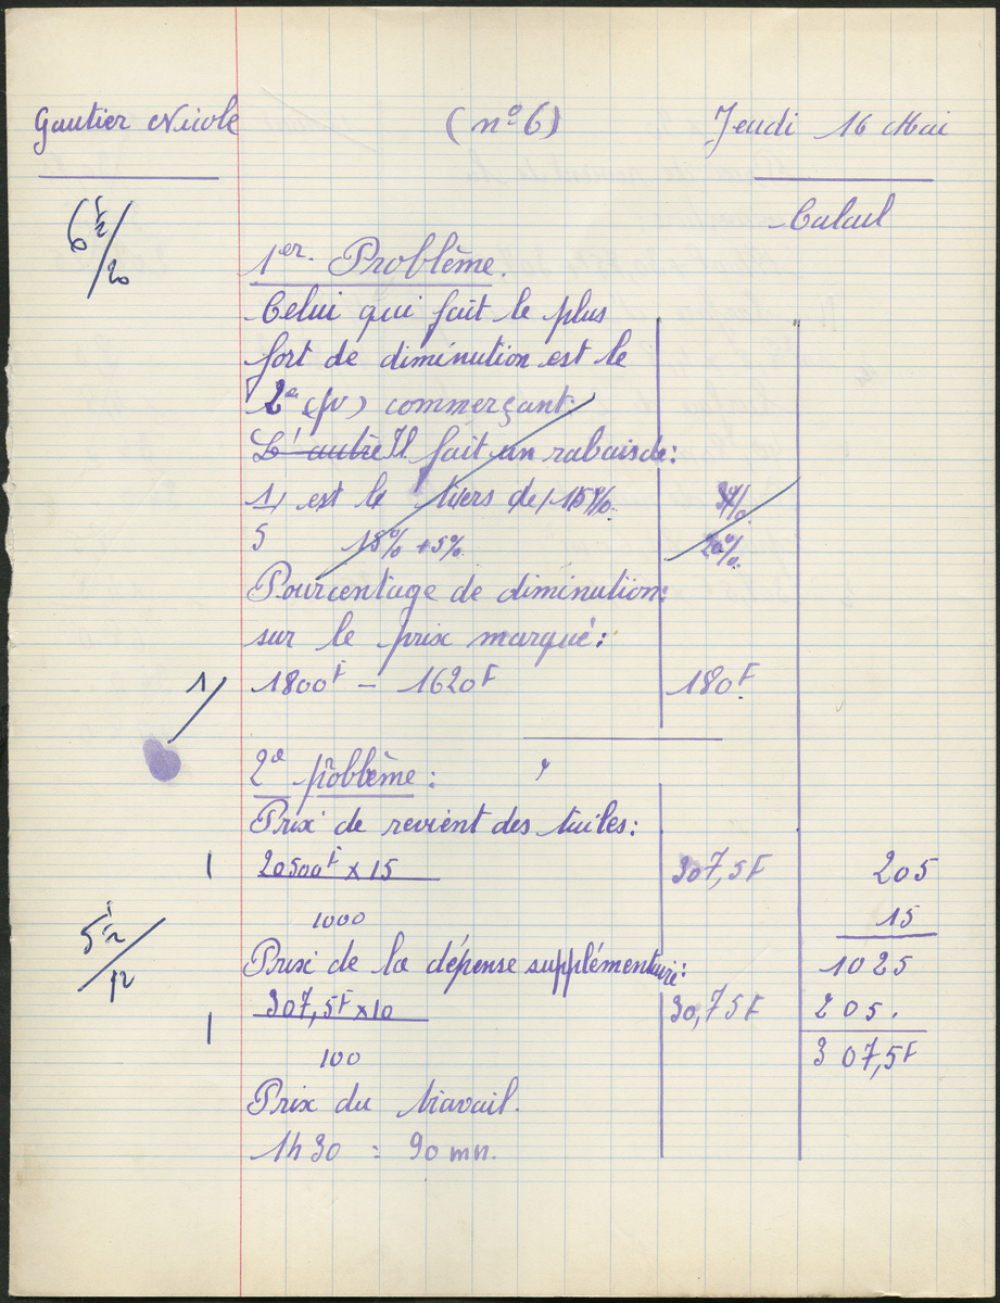 Gautier Nicole (n° 6) Jeudi 16 Mai
Calcul
6 1/2 / 20
1er. Problème.
Celui qui fait le plus
fort de diminution est le
2e (pr) commerçant.
L'autre Il fait un rabais de:
1 est le tiers de 15%. 3%.
5 15% + 5% 20%.
Pourcentage de diminution:
sur le prix marqué:
1 1800F - 1620F 180F
2e problème:
Prix de revient des tuiles:
1 20500F x 15 307,5F 205
1000 15
5 1/2 / 12
Prix de la dépense supplémentaire: 1025
307,5F x 10 30,75F 205.
1 100 307,5F
Prix du travail.
1h30 = 90 mn.